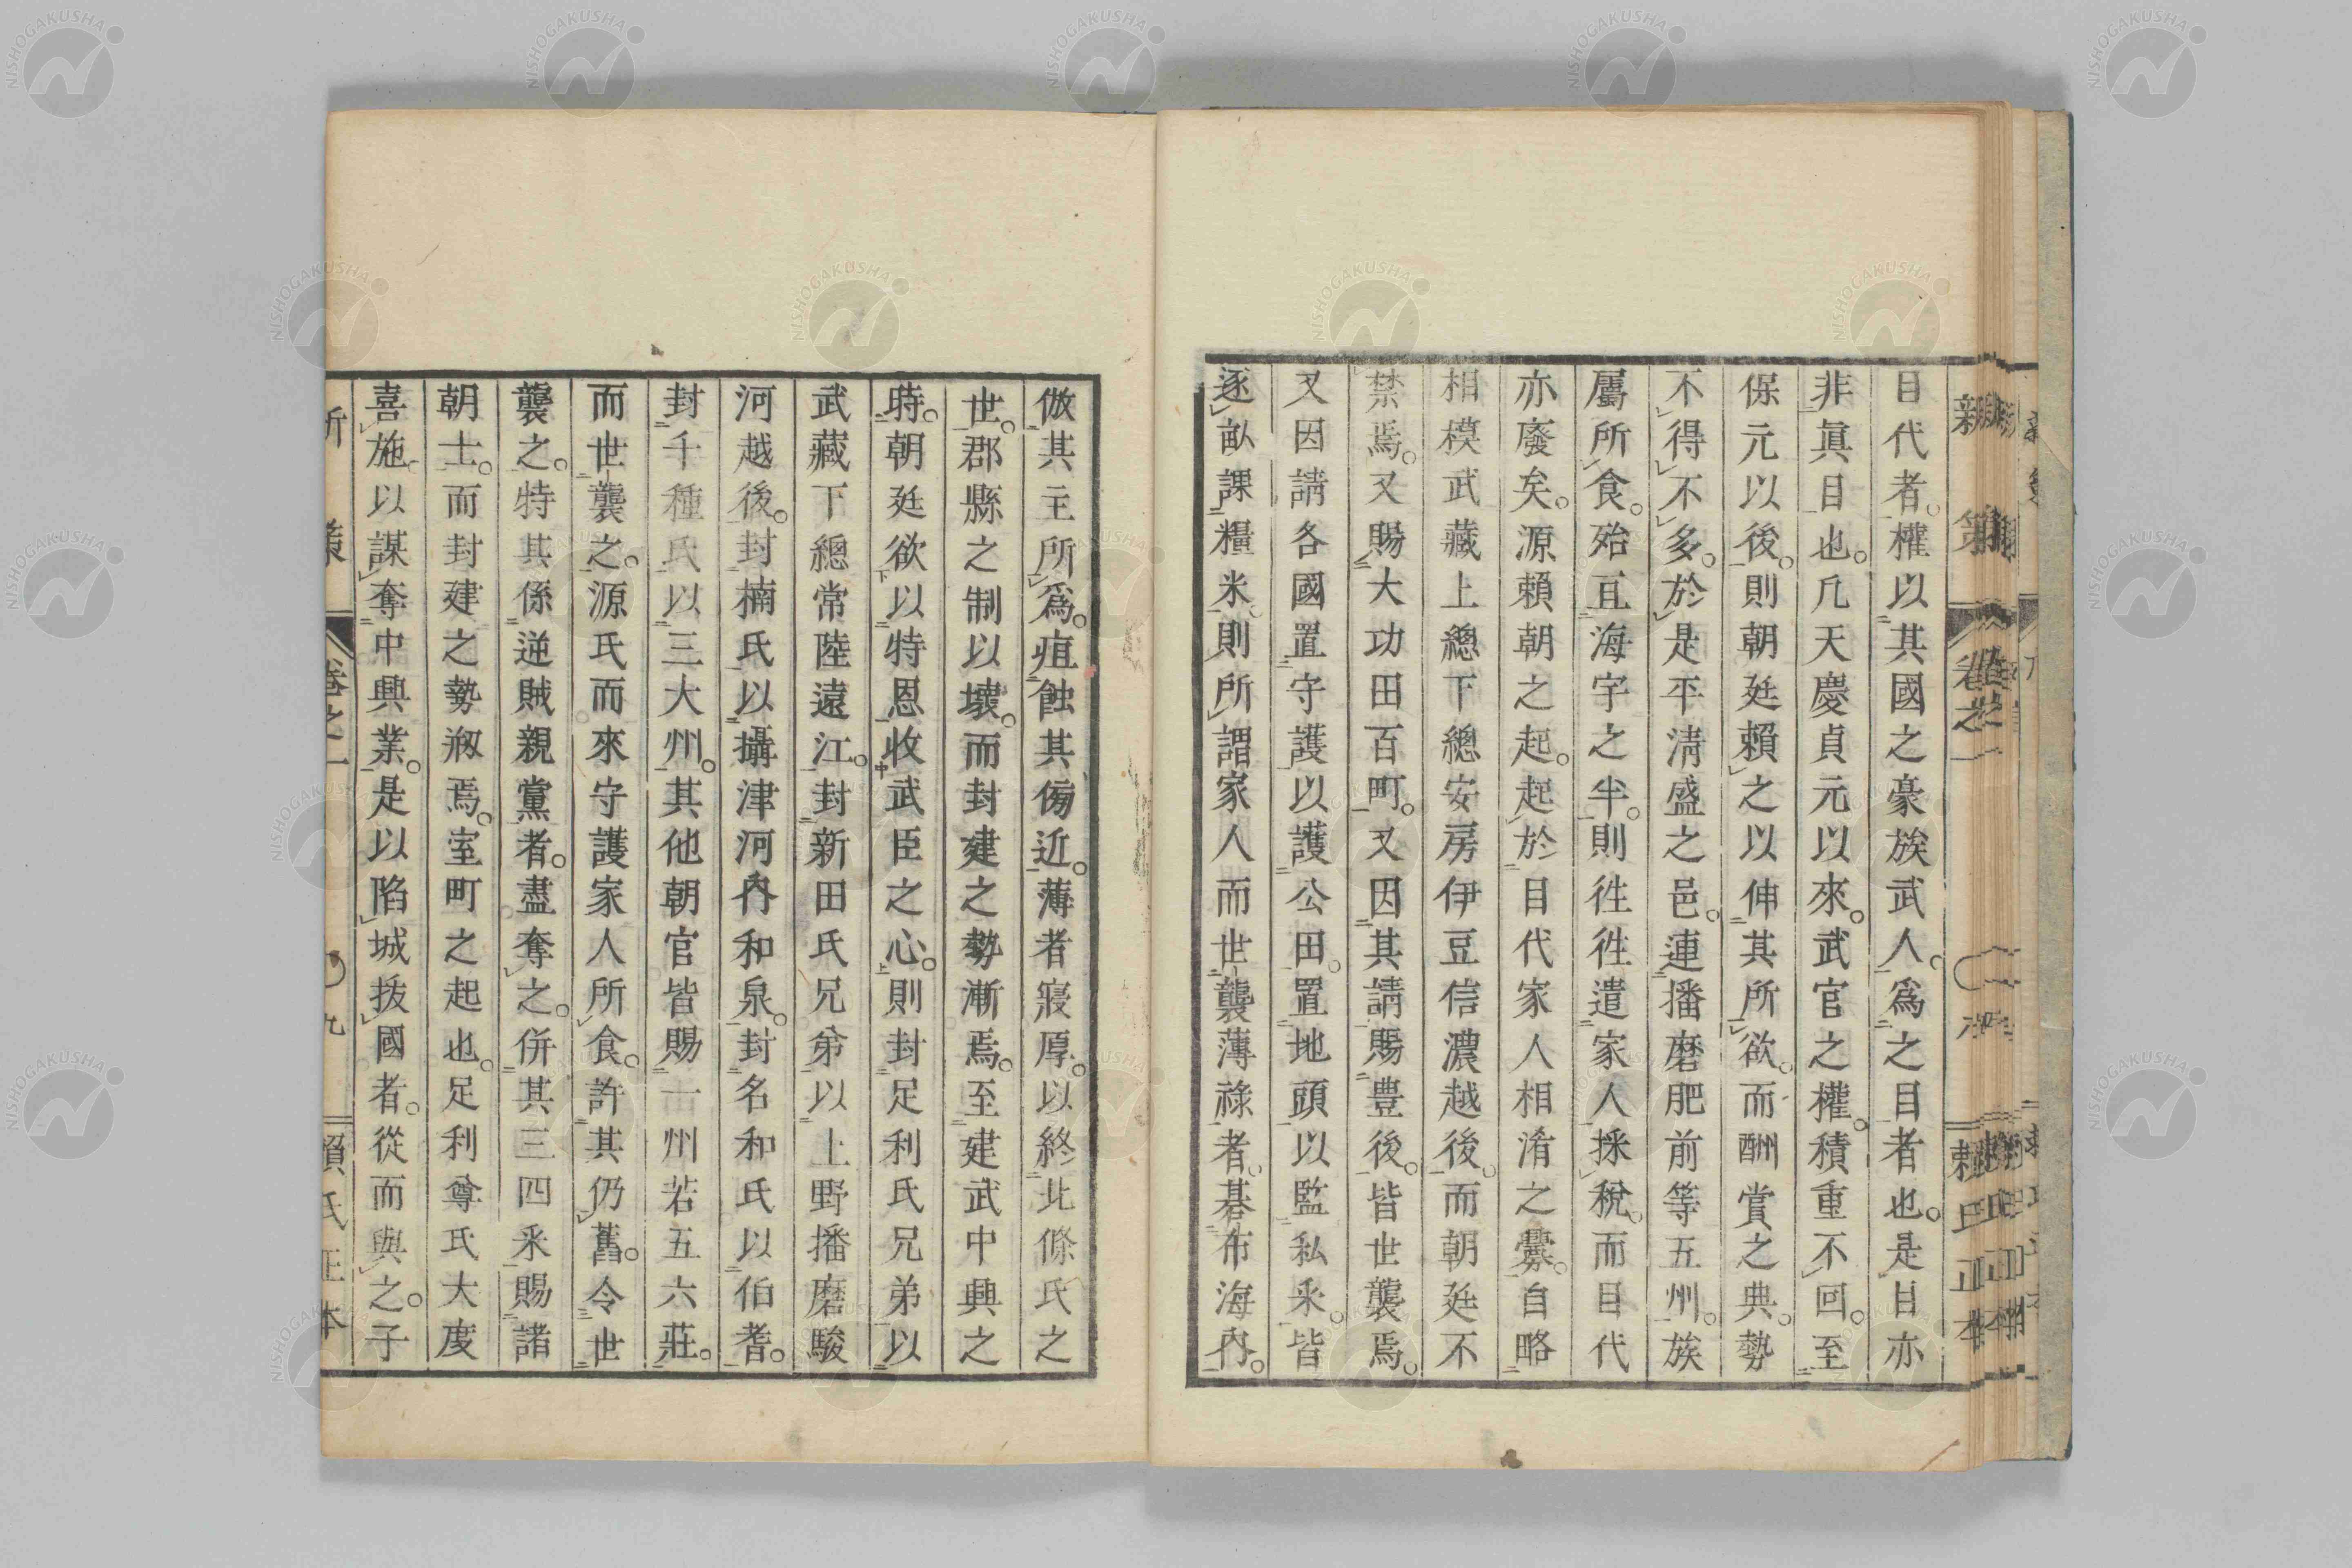 目代者。權以其國之豪族武人。爲之目者也。是目亦
非眞目也。凡天慶貞元以來。武官之權。積重不回。至
保元以後。則朝廷賴之以伸其所欲。而酬賞之典。勢
不得不多。於是平淸盛之邑。連播磨肥前等五州。族
屬所食。殆亙海宇之半。則徃徃遣家人採稅。而目代
亦廢矣。源賴朝之起。起於目代家人相淆之釁。自略
相模武藏上總下總安房伊豆信濃越後。而朝廷不
禁焉。又賜大功田百町。又因其請賜豊後。皆世襲焉。
又因請各國置守護以護公田。置地頭以監私采。皆
逐畝課糧米、則所謂家人而世襲薄祿者。碁布海內。
倣其主所爲。疽蝕其傍近。薄者寢厚。以終北條氏之
世。郡縣之制以壞。而封建之勢漸焉。至建武中興之
時。朝廷欲以特恩收武臣之心。則封足利氏兄弟以
武藏下總常陸遠江。封新田氏兄弟以上野播磨駿
河越後。封楠氏以攝津河內和泉。封名和氏以伯耆。
封千種氏以三大州。其他朝官皆賜一州若五六莊。
而世襲之。源氏而來守護家人所食。許其仍舊。令世
襲之。特其係逆賊親黨者。盡奪之。併其三四采賜諸
朝士。而封建之勢剏焉。室町之起也。足利尊氏大度
喜施。以謀奪中興業。是以陷城拔國者。從而與之。子
新策
卷之一
九
賴氏正本